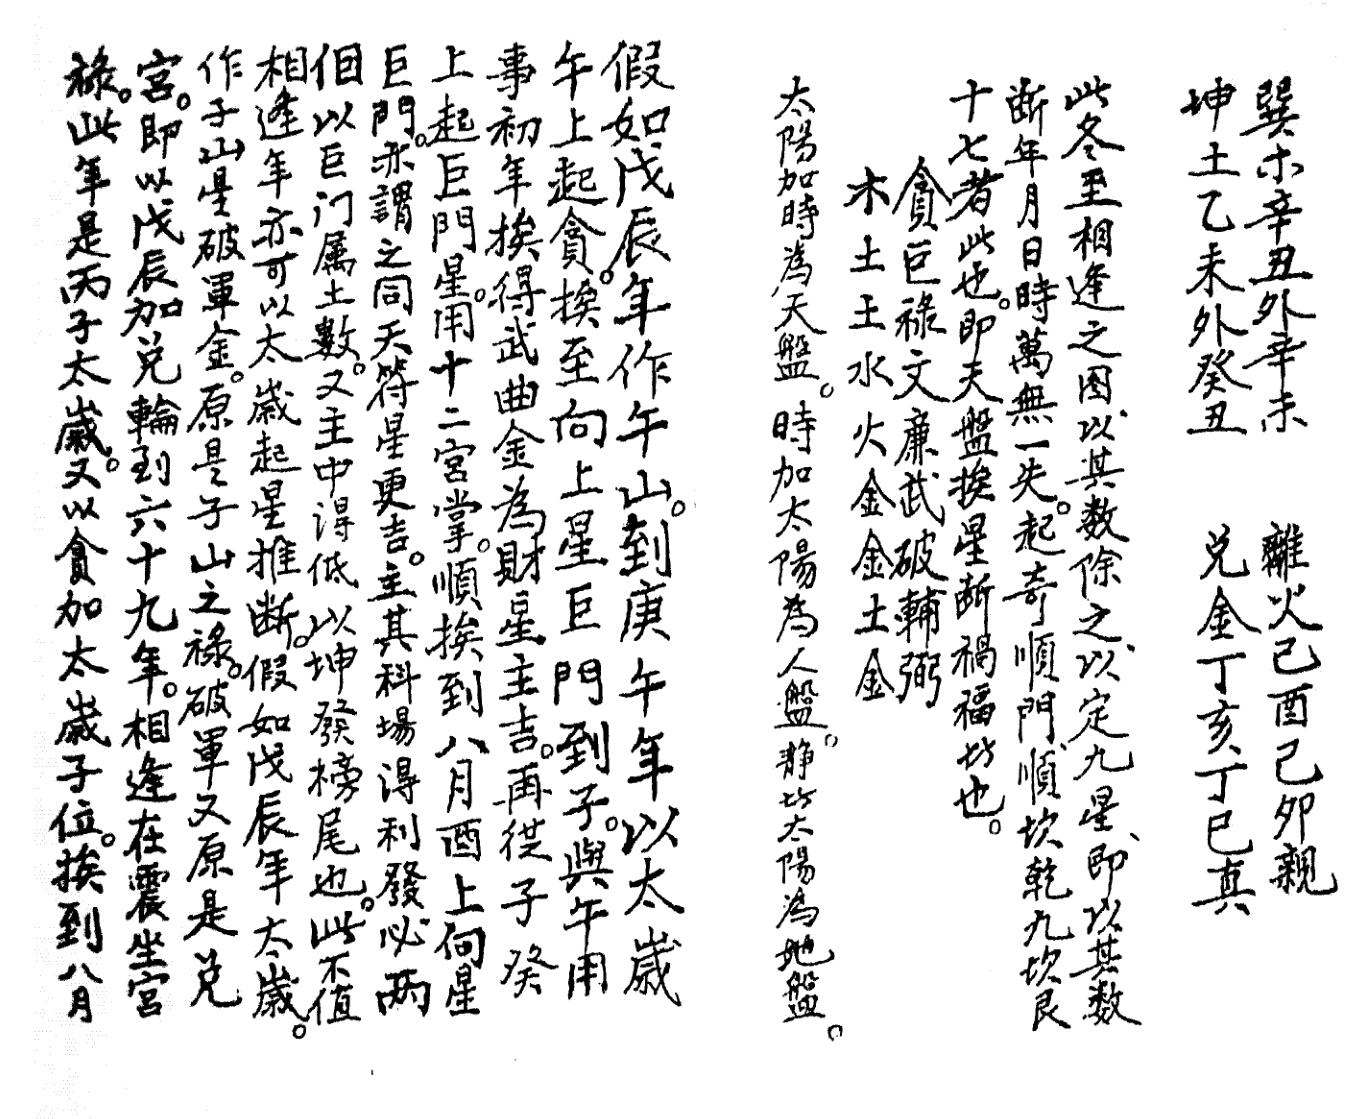 巽木辛丑外辛未　離火己酉己卯親
坤土乙未外癸丑　兑金丁亥丁巳真
此冬至相逢之图以其数除之以定九星即以其数
断年月日時萬無一失。起奇順門順坎乾九坎艮
十七者此也。即天盤挨星断禍福坊也。
貪巨禄文廉武破輔弼
木土土水火金金土金
太陽加時為天盤。時加太陽為人盤。静坊太陽為地盤。
假如戊辰年作午山。到庚午年以太歲
午上起貪。挨至向上星巨門到子。與午用
事初年挨得武曲金為財星主吉。再従子癸
上起巨門星。用十二宮掌。順挨到八月酉上向星
巨門。亦謂之同天符星更吉。主其科場得利發必两
佪以巨门属土數。又主中得低以坤發榜尾也。此不值
相逢年亦可以太歲起星推断。假如戊辰年太歲。
作子山星破軍金。原是子山之禄。破軍又原是兑
宮。即以戊辰加兑輪到六十九年。相逢在震坐宮
禄。此年是丙子太歲。又以貪加太歲子位。挨到八月